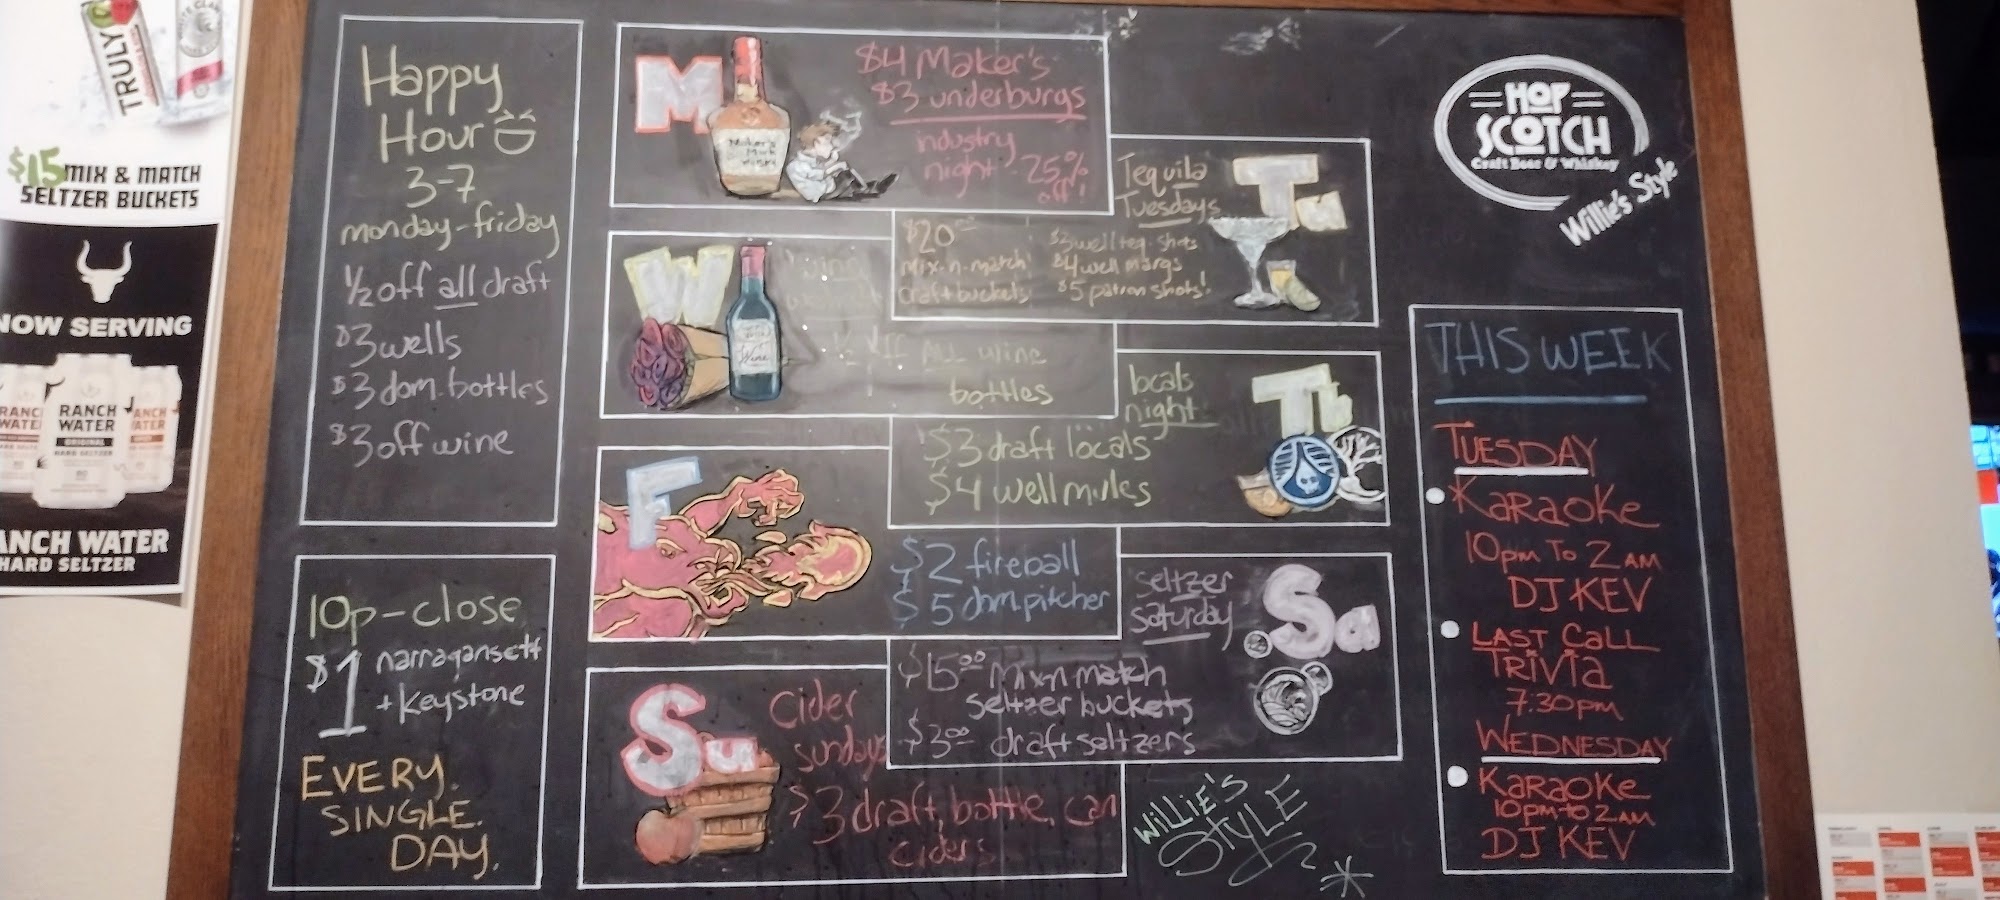 TRULY
WHITE CLAW
$15 MIX & MATCH
SELTZER BUCKETS
NOW SERVING
RANCH
WATER
ORIGINAL
HARD SELTZER
RANCH WATER
HARD SELTZER
Happy
Hour
3-7
monday-friday
1/2 off all draft
$3 wells
$3 dom. bottles
$3 off wine
10p-close
$1 narragansett
+ Keystone
EVERY.
SINGLE.
DAY.
M
Maker's
Mark
Whisky
$4 Maker's
$3 underburgs
industry
night 25%
off!
Tequila
Tuesdays
Tu
$20.00
mix-n-match!
craft buckets
$3 well teq. shots
$4 well margs
$5 patron shots!
W
Wine
1/2 off ALL wine
bottles
locals
night
Th
$3 draft locals
$4 well mules
F
$2 fireball
$5 dom pitcher
seltzer
saturday
Sa
$15.00 Mix-n match
seltzer buckets
$3.00 draft seltzers
Su
Cider
sundays
$3 draft, bottle, can
ciders
WILLIE'S
STYLE
HOP
SCOTCH
Craft Beer & Whiskey
Willie's Style
THIS WEEK
TUESDAY
KARAOKE
10pm TO 2 AM
DJ KEV
LAST CALL
TRIVIA
7:30pm
WEDNESDAY
KARAOKE
10pm to 2 AM
DJ KEV